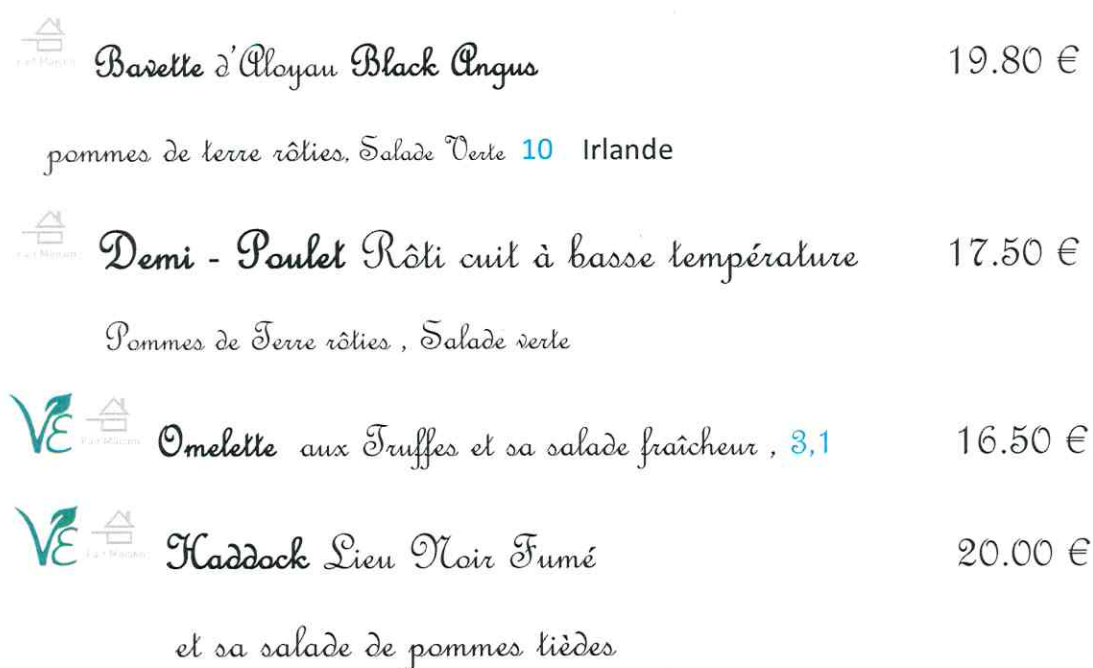 Bavette d'Aloyau Black Angus 19.80 €
pommes de terre rôties, Salade Verte 10 Irlande
Demi - Poulet Rôti cuit à basse température 17.50 €
Pommes de Terre rôties , Salade verte
VE Fait Maison Omelette aux Truffes et sa salade fraîcheur , 3,1 16.50 €
VE Haddock Lieu Noir Fumé 20.00 €
et sa salade de pommes tièdes